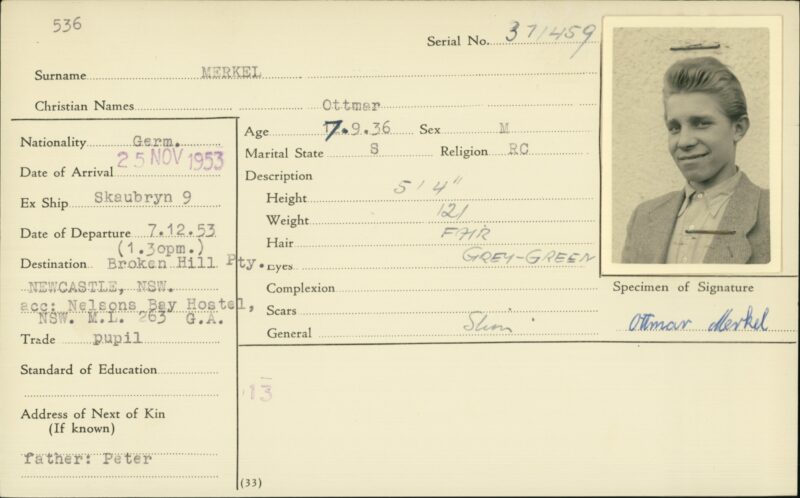 536
Serial No. 371459
Surname MERKEL
Christian Names Ottmar
Nationality Germ.
Date of Arrival 25 NOV 1953
Ex Ship Skaubryn 9
Date of Departure 7.12.53
(1.30pm.)
Destination Broken Hill Pty.
NEWCASTLE, NSW.
acc: Nelsons Bay Hostel,
NSW. M.L. 263 G.A.
Trade pupil
Standard of Education
Address of Next of Kin
(If known)
father: Peter
Age 7.9.36 Sex M
Marital State S Religion RC
Description
Height 5' 4"
Weight 121
Hair FAIR
Eyes GREY-GREEN
Complexion
Scars
General
13
(33)
Specimen of Signature
Ottmar Merkel